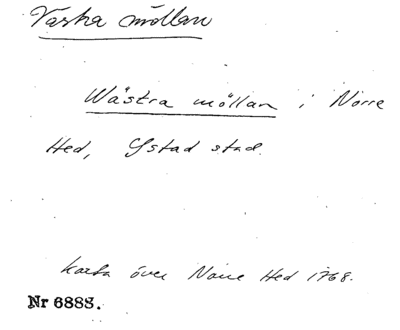 Västra möllan
Wästra möllan i Norre
Hed, Ystad stad.
karta över Norre Hed 1768.
Nr 6888.